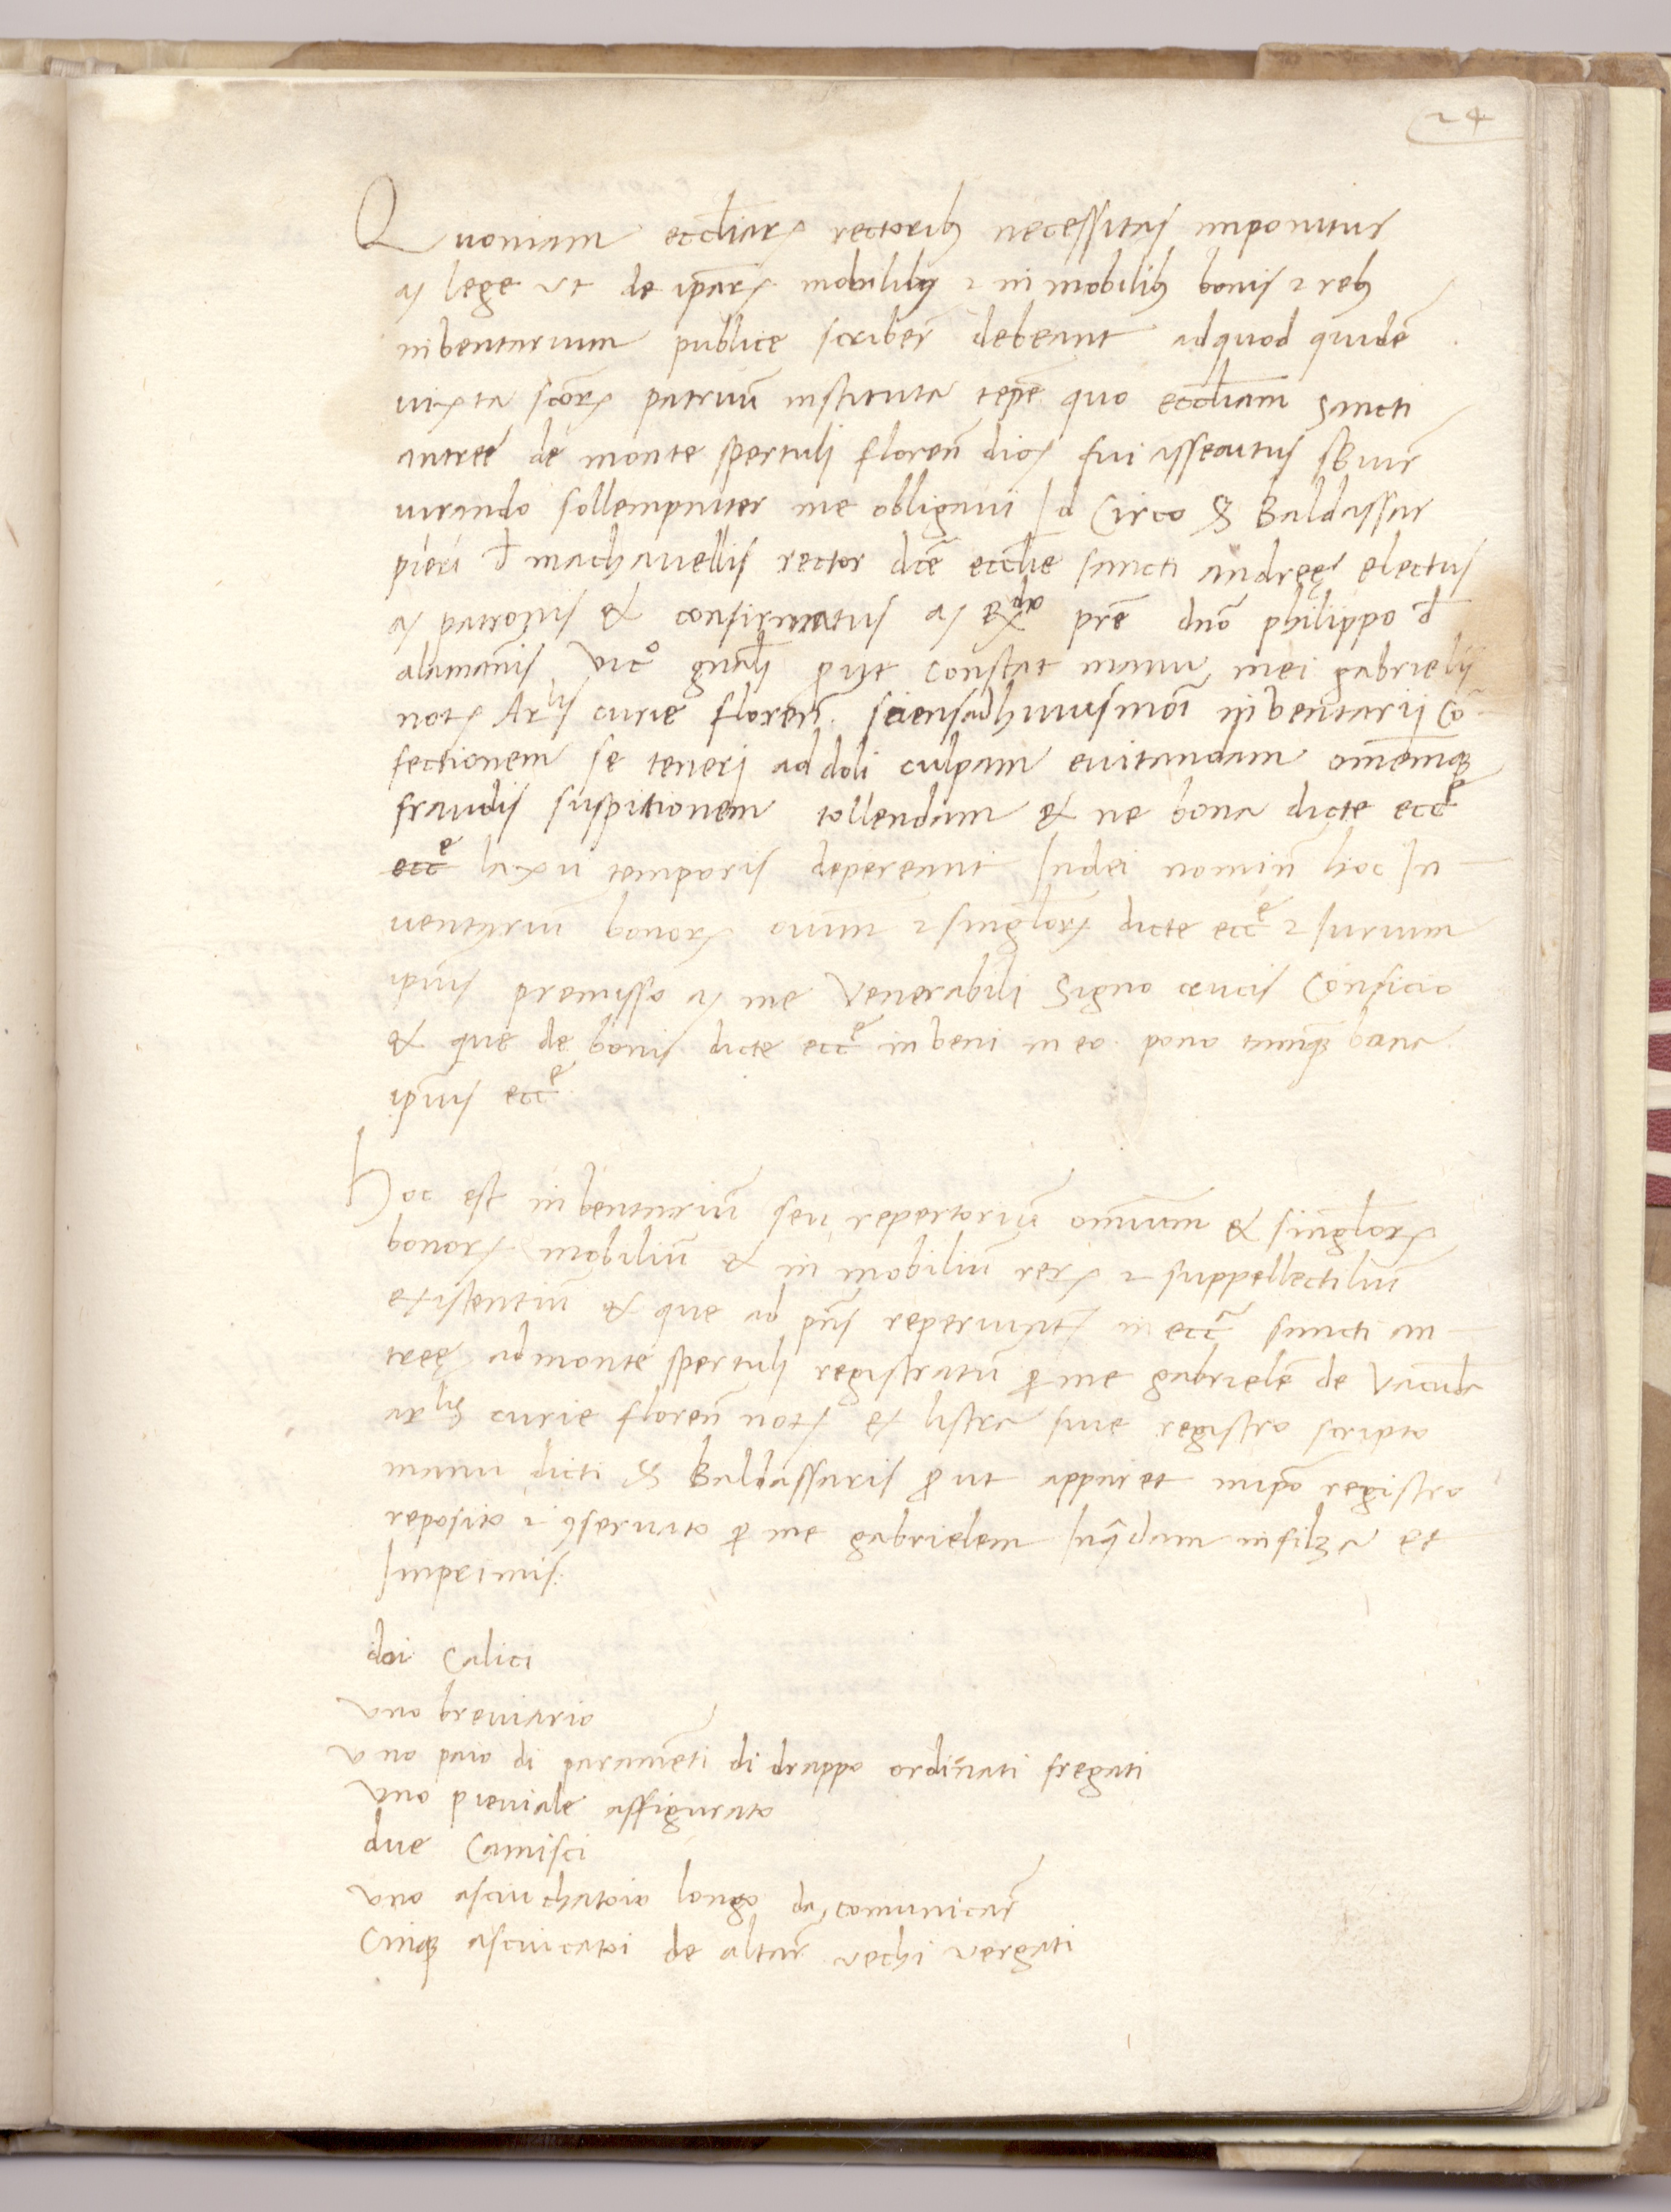 24
Quoniam eccliarꝝ rectoribꝫ necessitas imponitur
a lege vt de iparꝝ mobilibꝫ ⁊ in mobilibꝫ bonis ⁊ rebꝫ
inbentarium publice scriber̄ debeant adquod quidē
iuxta scōrꝝ patruū instituta tēpē quo eccliam sancti
antreę de monte spertuli floreñ dioꝭ fui assecutus
iurando sollempniter me obligaui Id Circo S Baldassar
pieri đ machiauellis rector dcē ecclie sancti andreę electus
a patronis & confirmatus a Rdo prē dnō philippo đ
alamānis vico gnāli ꝓ ut constat manu mei gabrielis
notꝭ Arlis curie floreñ. sciensadhuiusmōi inbentarij Cō
fectionem se teneri ad doli culpam euitandam omēmqꝫ
fraudis suspitionem tollendam & ne bona dicte eccē
eccē laxu temporis depereant In dei nomiñ hoc In
uentariū bonorꝝ oium ⁊ singlorꝝ dicte eccē ⁊ Iurium
ipius premisso a me Venerabili Signo crucis Conficio
& que de bonis dicte eccē inbeni in eo pono tamqꝫ bona
ipius eccē
Hoc est inbentariū seu repertoriū omnium & singlorꝝ
bonorꝝ mobiliū & in mobiliū rerꝝ ⁊ suppellectiliū
existentiū & que ad pñs reperiuntꝭ in eccā sancti an
treę admonte spertuli registratū ꝑ me gabrielē de
arlis curie floreñ notꝭ ex listra siue registro scripto
manu dicti S Baldassaris ꝓ ut apparet in ipō registro
reposito ⁊ ꝯseruato ꝑ me gabrielem In qdam infilza et
Inprimis.
doi Calici
vno breuiario
vno paio di paramēti di drappo ordinati fregati
vno pieuiale affigurato
due Camisci
vno asciuchatoio longo da comunicar̄
Cinqꝫ asciucatoi de altar̄ vechi vergati